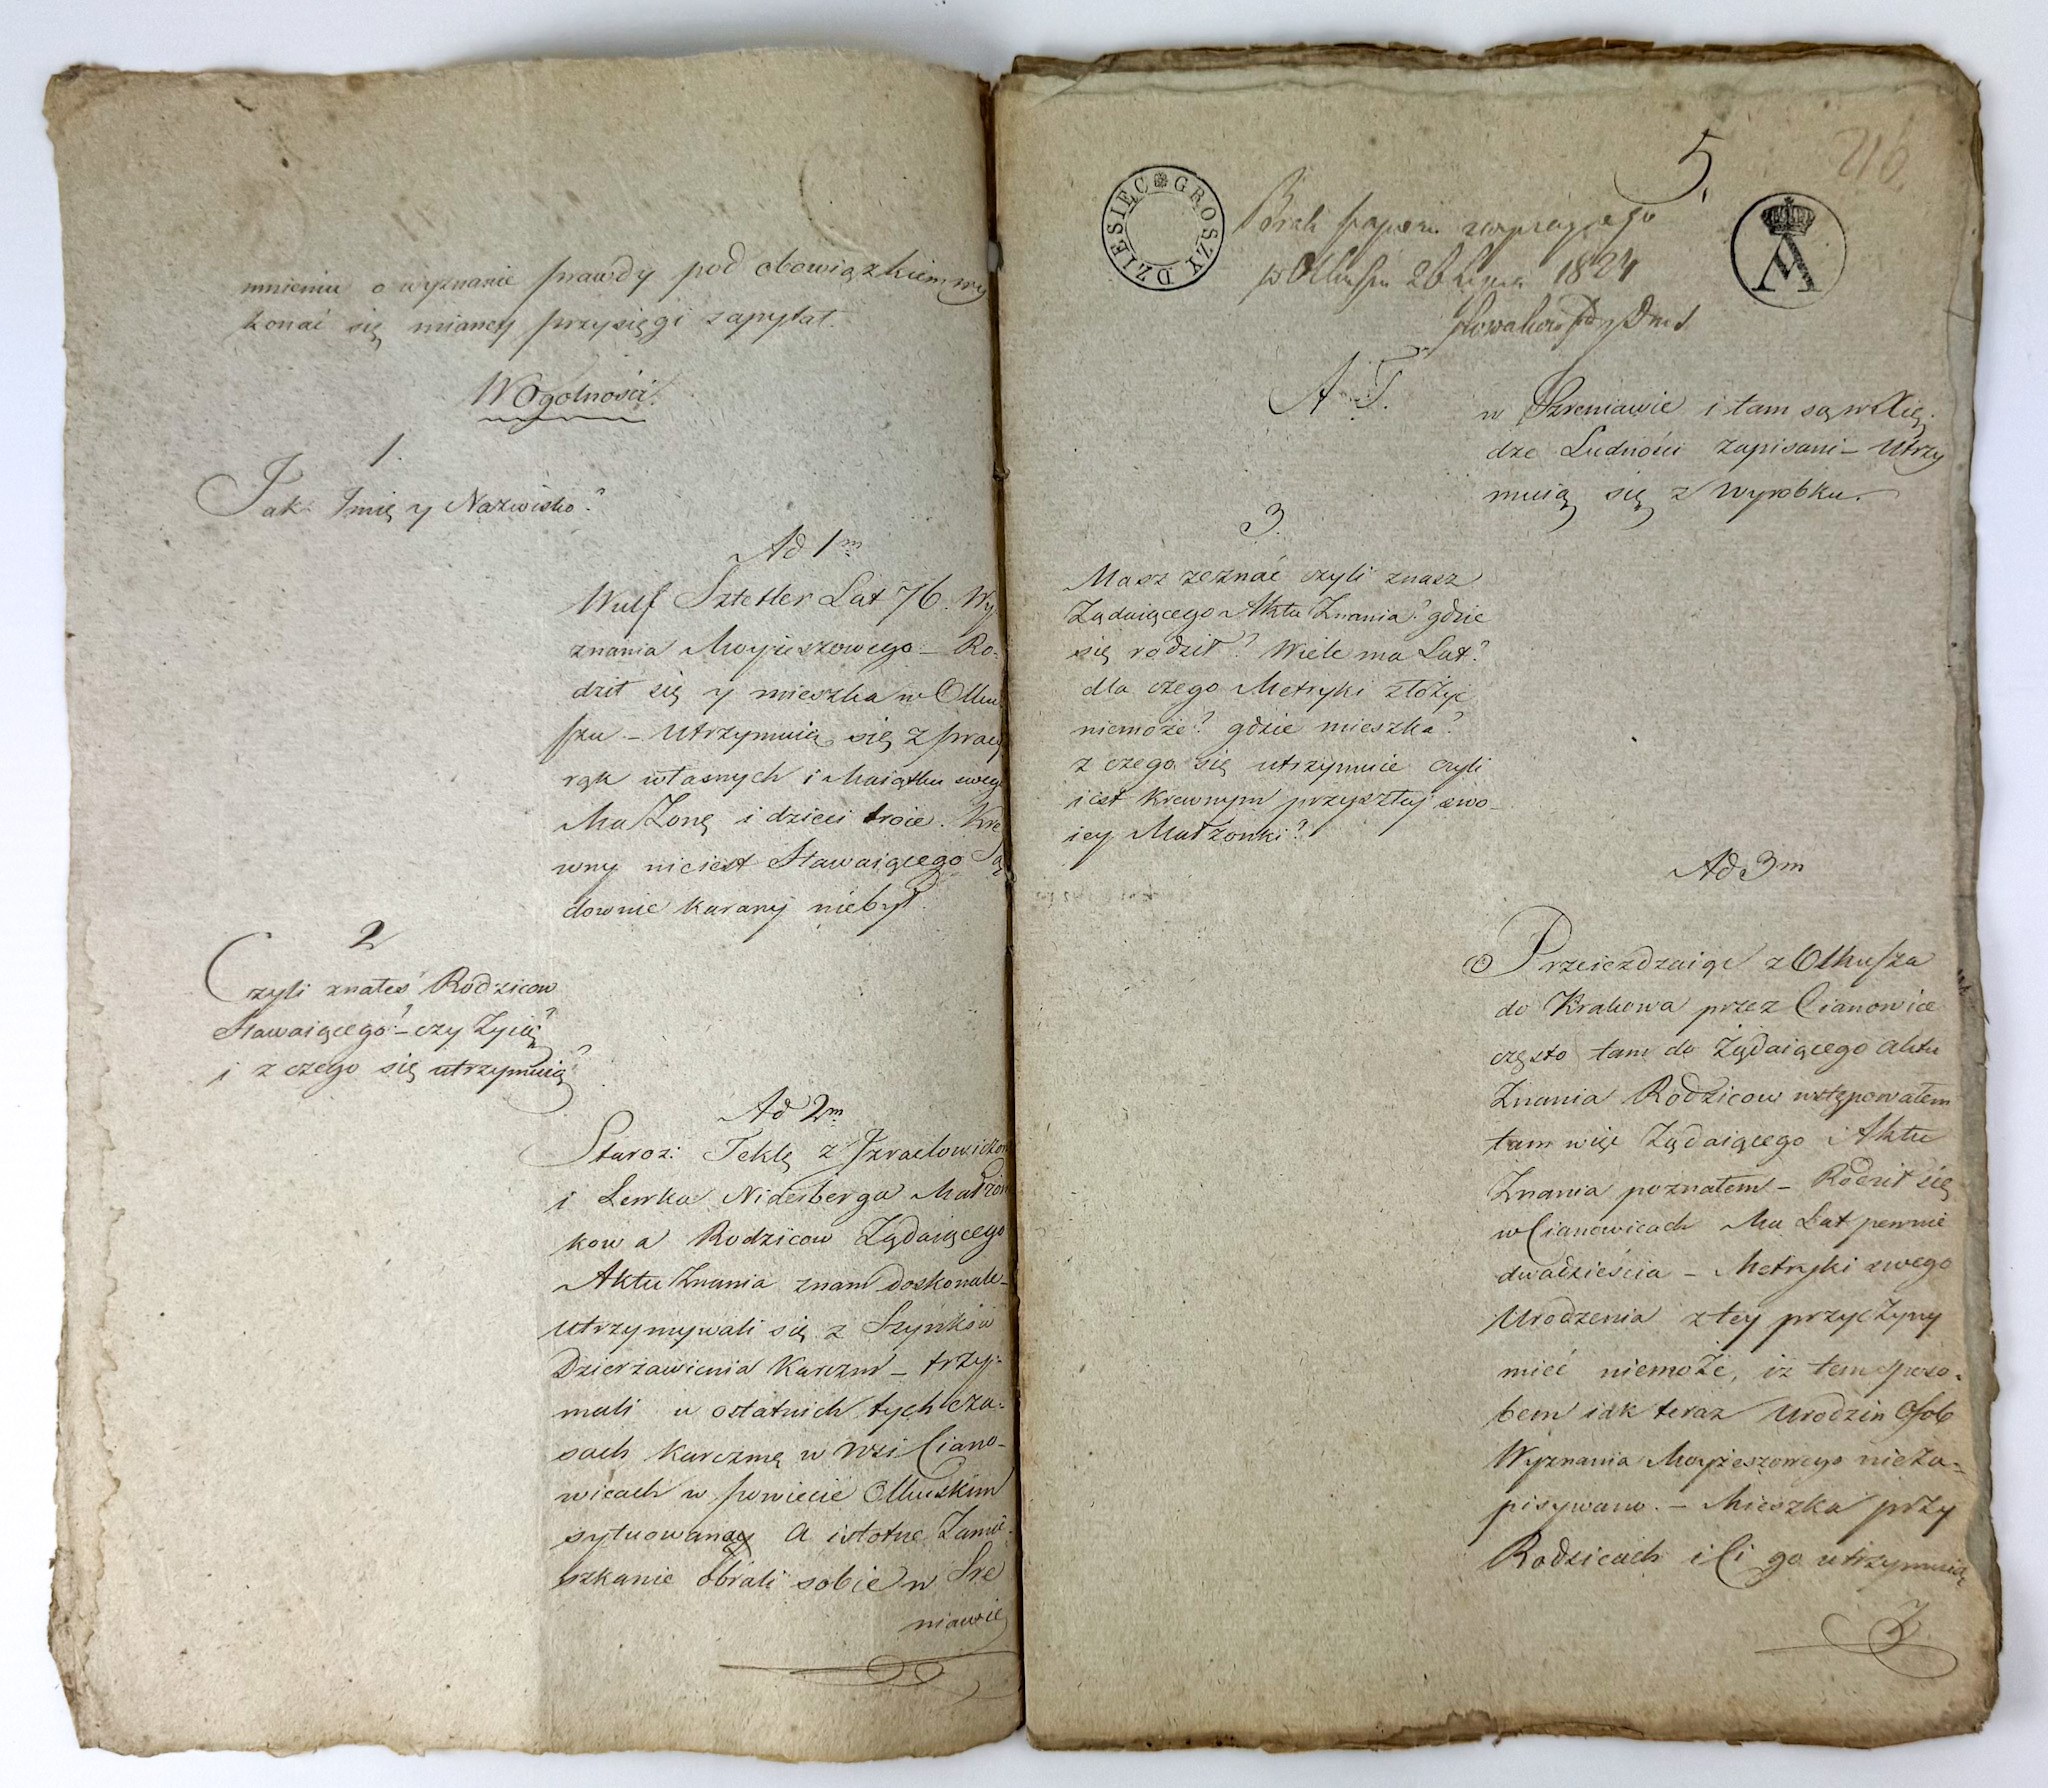 mnieniu o wyznanie prawdy pod obowiązkiem wy
konać się mianey przysięgi zapytał.
W Ogolności.
1.
Jak Imię y Nazwisko?
Ad 1m
Wulf Sztetler Lat 76. Wy
znania Moyżeszowego – Ro-
dził się y mieszka w Olku
szu – Utrzymuię się z pracy
rąk własnych i Maiątku swego
Ma Żonę i dzieci troie. Kre
wny nieiest Stawaiącego Są
downie karany niebył.
2
Czyli znałeś Rodzicow
Stawaiącego? – czy Żyią?
i z czego się utrzymuią?
Ad 2m
Staroz: Teklę z Izraelowiczow
i Lewka Nidesberga Małżon
kow a Rodzicow Żądaiącego
Aktu Znania znam doskonale –
utrzymywali się z Szynków
Dzierżawienia Karczm – trzy-
mali w ostatnich tych cza-
sach Karczmę w Wsi Ciano-
wicach w powiecie Olkuskim
sytuowaną A istotne Zamie-
szkanie obrali sobie w Sre
niawie
5.
216.
DZIESIĘC GROSZY
A
Brak papieru
w Olkuszu 26 1824
A. T.
w Szreniawie i tam są w Xię-
dze Ludności zapisani – Utrzy
muią się z wyrobku.
3.
Masz zeznać czyli znasz
Żądaiącego Aktu Znania? gdzie
się rodził? Wiele ma Lat?
dla czego Metryki złożyć
niemoże? gdzie mieszka?
z czego się utrzymuie czyli
iest Krewnym przyszłej swo-
iey Małżonki?
Ad 3m
Przeieżdzaiąc z Olkusza
do Krakowa przez Cianowice
często tam do Żądaiącego Aktu
Znania Rodzicow wstępowałem
tam więc Żądaiącego Aktu
Znania poznałem – Rodził się
w Cianowicach Ma Lat pewnie
dwadzieścia – Metryki swego
Urodzenia z tey przyczyny
mieć niemoże, iż tem sposo-
bem iak teraz Urodzin Osob
Wyznania Moyżeszowego nieza-
pisywano. – Mieszka przy
Rodzicach i Ci go utrzymuią
Z